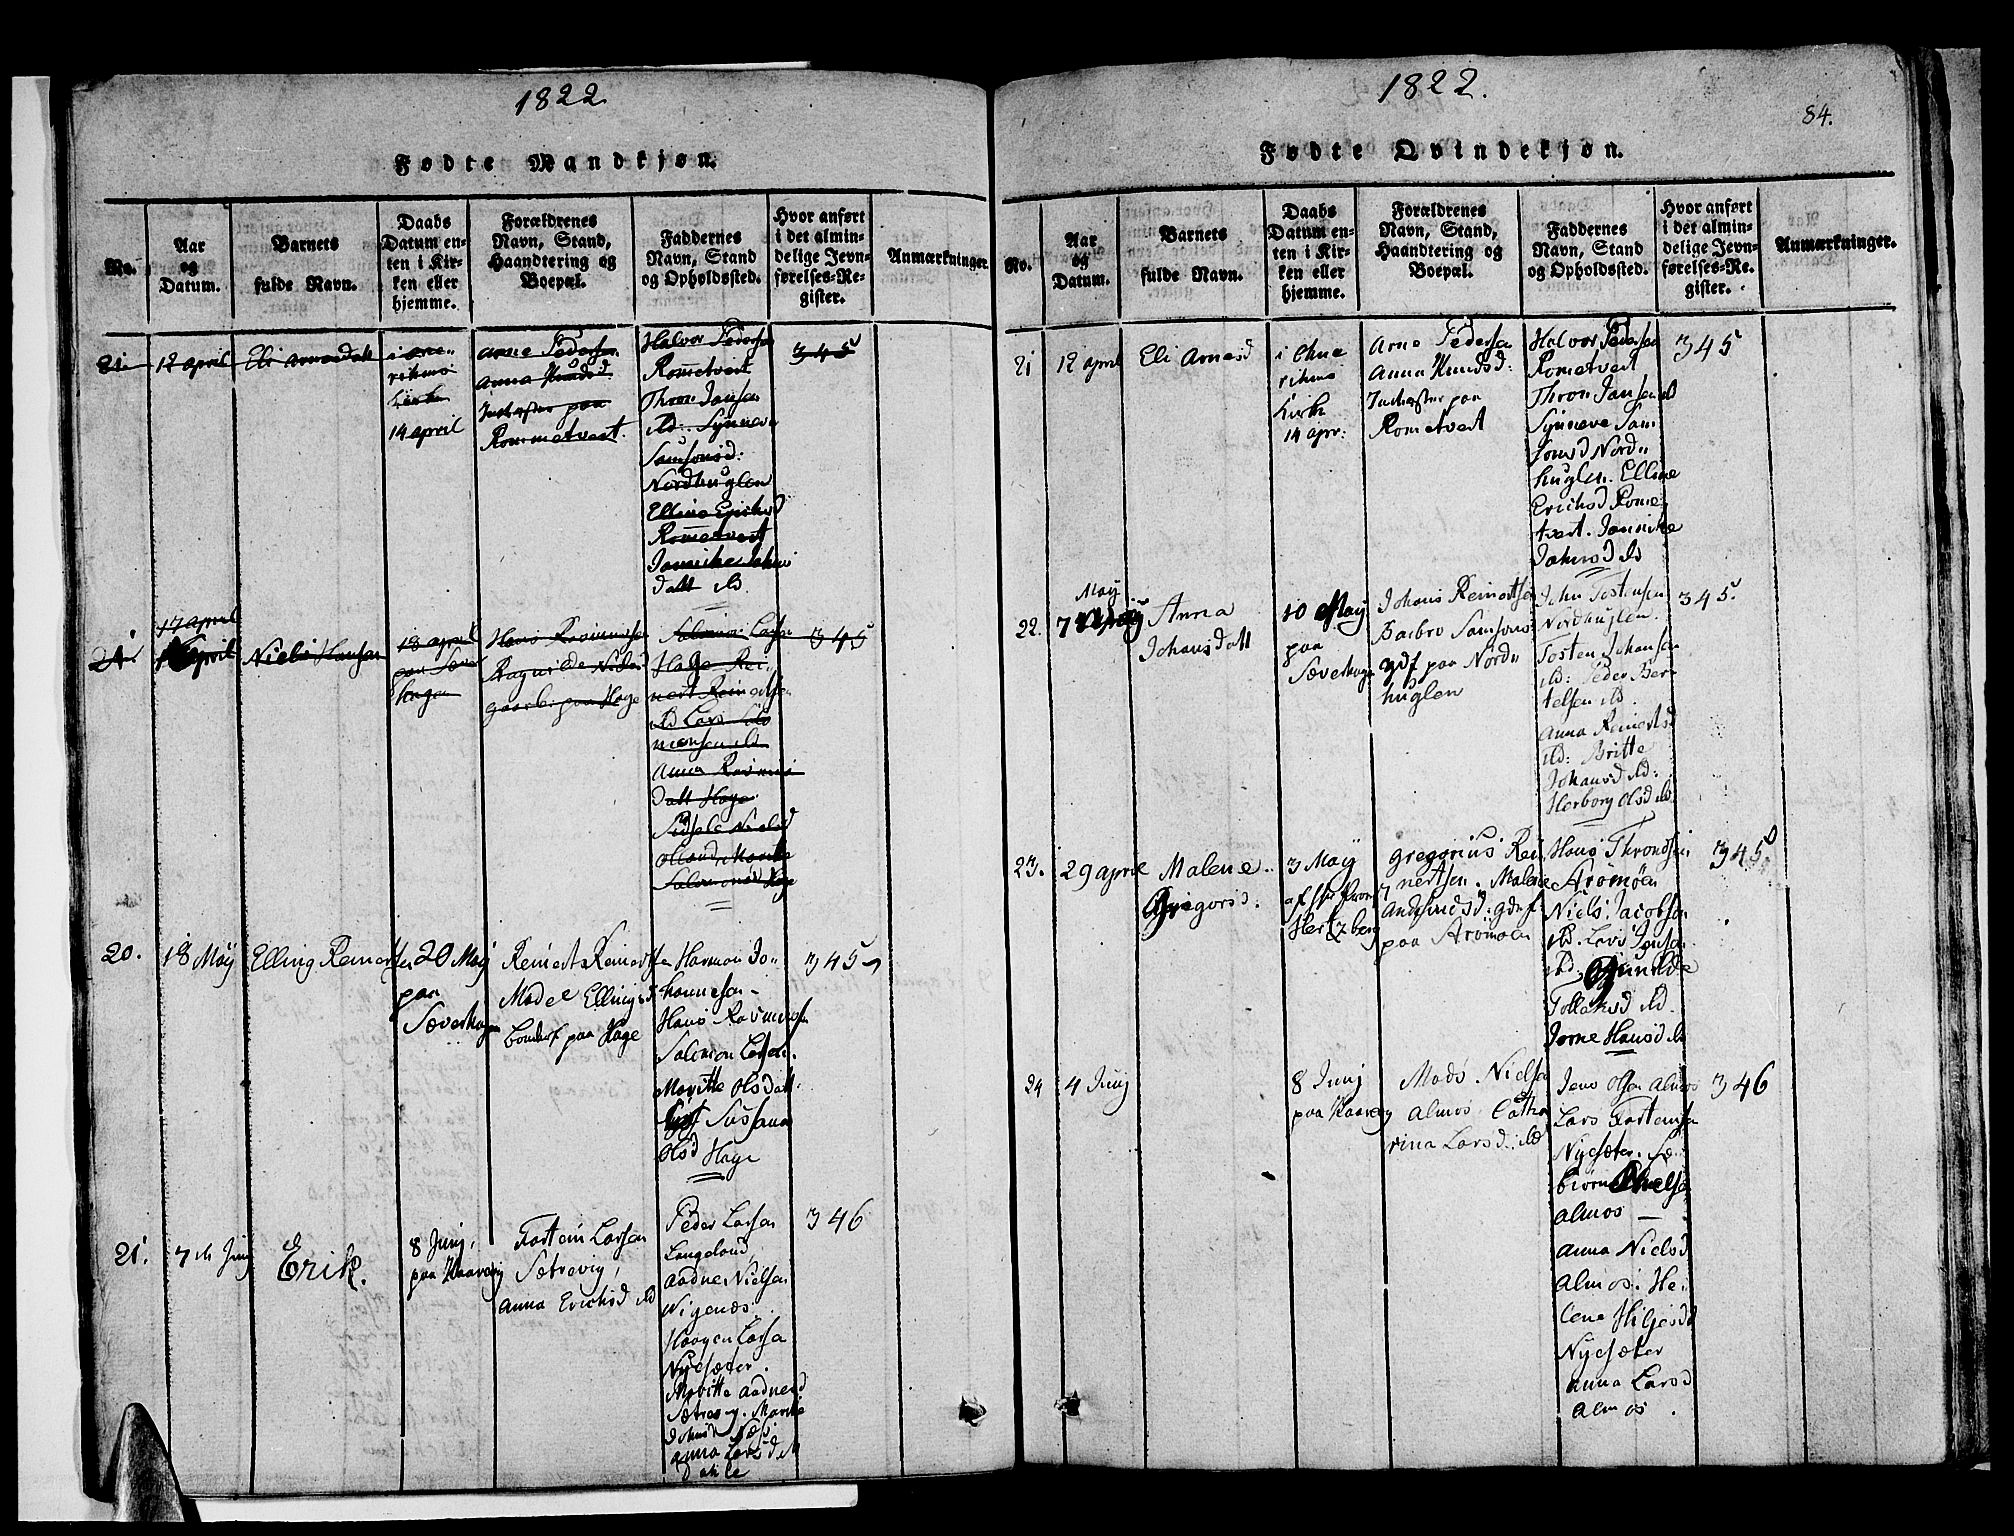 1822
Fødte Mandkjøn.
No.
Aar
og
Datum.
Barnets
fulde Navn.
Daabs
Datum en-
ten i Kir-
ken eller
hjemme.
Forældrenes
Navn, Stand,
Haandtering og
Boepæl.
Faddernes
Navn, Stand
og Opholdssted.
Hvor anført
i det almin-
delige Jevn-
førelses-Re-
gister.
Anmærkninger.
21.
12 april
Eli Arnesdatt
kirke
14 april
Arne Pedersen
Anna Knudsd
paa
Rommetvert.
Halvor Pedersen
Rommetvert
Thron Jansen
ibd: Synneve
Samsonsd:
Nordhuglen
Elline Erichsd
Rometvert
Jannicke Johns
datt ibd.
17 april
april
Niels Hansen
18 april
paa Sæver
hagen
Hans Rasmussen
Ragnilde Nielsd
paa Hage
Salomon Larsen
Hage Rei
nert Reinertsen
ibd Lars Salo
monsen ibd
Anna Rasmus
datt Hage
Sidsele Nielsd
Marite
Salomonsd Hage
345
345
20.
18 Maij
Elling Reinertsen
20 Maij
paa
Sæverhagen
Reinert Reinertsen
Madel Ellingsd
paa Hage
Harman Jo-
hannesen -
Hans Rasmussen
Salomon Larsen.
Maritte Olsdatt.
Sussana
Olsd Hage
345
21.
7de Junij
Erik.
8 Junij,
paa Waaveg
Tostein Larsen
Sætrevig,
Anna Erichsd ibd
Peder Larsen
Langeland,
Aadne Nielsen
Wigenæs.
Haagen Larsen
Nysæter.
Maritte Aadnesd
Sætrevig. Marite
Johnsd Næss
Anna Larsd
346
1822.
84.
Fødte Qvindekjøn.
No.
Aar
og
Datum.
Barnets
fulde Navn.
Daabs
Datum en-
ten i Kir-
ken eller
hjemme.
Forældrenes
Navn, Stand,
Haandtering og
Boepæl.
Faddernes
Navn, Stand
og Opholdssted.
Hvor anført
i det almin-
delige Jevn-
førelses-Re-
gister.
Anmærkninger.
21
12 april
Eli Arnesd
Kirke
14 apr:
Arne Pedersen
Anna Knudsd:
paa
Rometvert
Halvor Pedersen
Rometvert
Thron Jansen ibd
Synneve Sam
sonsd Nord"
huglen. Elline
Erichsd Rome
tvert. Jannike
Johnsd ibd
345
22.
Maij
7
Anna
Johansdatt
10 Maij
paa
Sæverhagen
Johans Reinertsen
Barbro Samsons
gdf paa Nord"
huglen
John Tostensen
Nordhuglen.
Tosten Johansen
ibd: Peder Ber-
telsen ibd.
Anna Reinertsd
ibd: Britte
Johansd ibd:
Herborg Olsd ibd.
345
23.
29 april
Malene
Gregorsd.
3 Maij
af Hr Provst
Hertzberg
Gregorius Rei
nertsen. Malene
gdf:
paa Aromøen
Hans Throndsen
Aromøen
Niels Jacobsen
ibd. Lars Jansen
ibd. Gunilde
Tollaksd ibd.
Jorne Hansd ibd
345
24
4 Junij
8 Junij
paa Waaveg
Mads Nielsen
Almos. Catha
rina Larsd: ibd
Jens Olsen Almos
Lars Tostensen
Nysæter. Sæ
biørn
Almos -
Anna Nielsd
Almos: He-
lene Hilgesd
Nysæter
Anna Larsd
Almos.
346